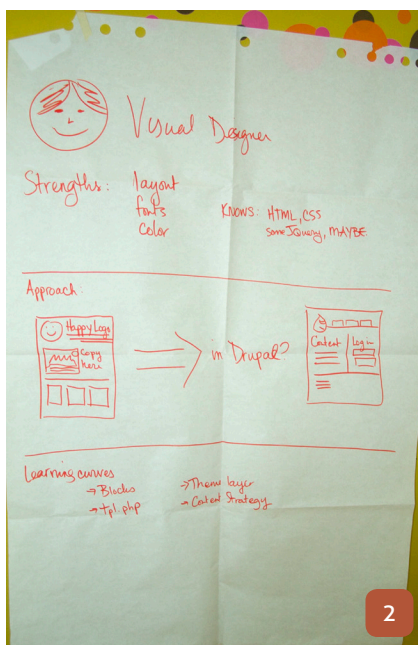 Visual Designer
Strengths: layout
fonts
color
Knows: HTML, CSS
some JQuery, MAYBE
Approach:
Happy Logo
Copy
here
in Drupal?
Content Login
Learning curves
→Blocks →Theme layer
→tpl.php →Content Strategy
2